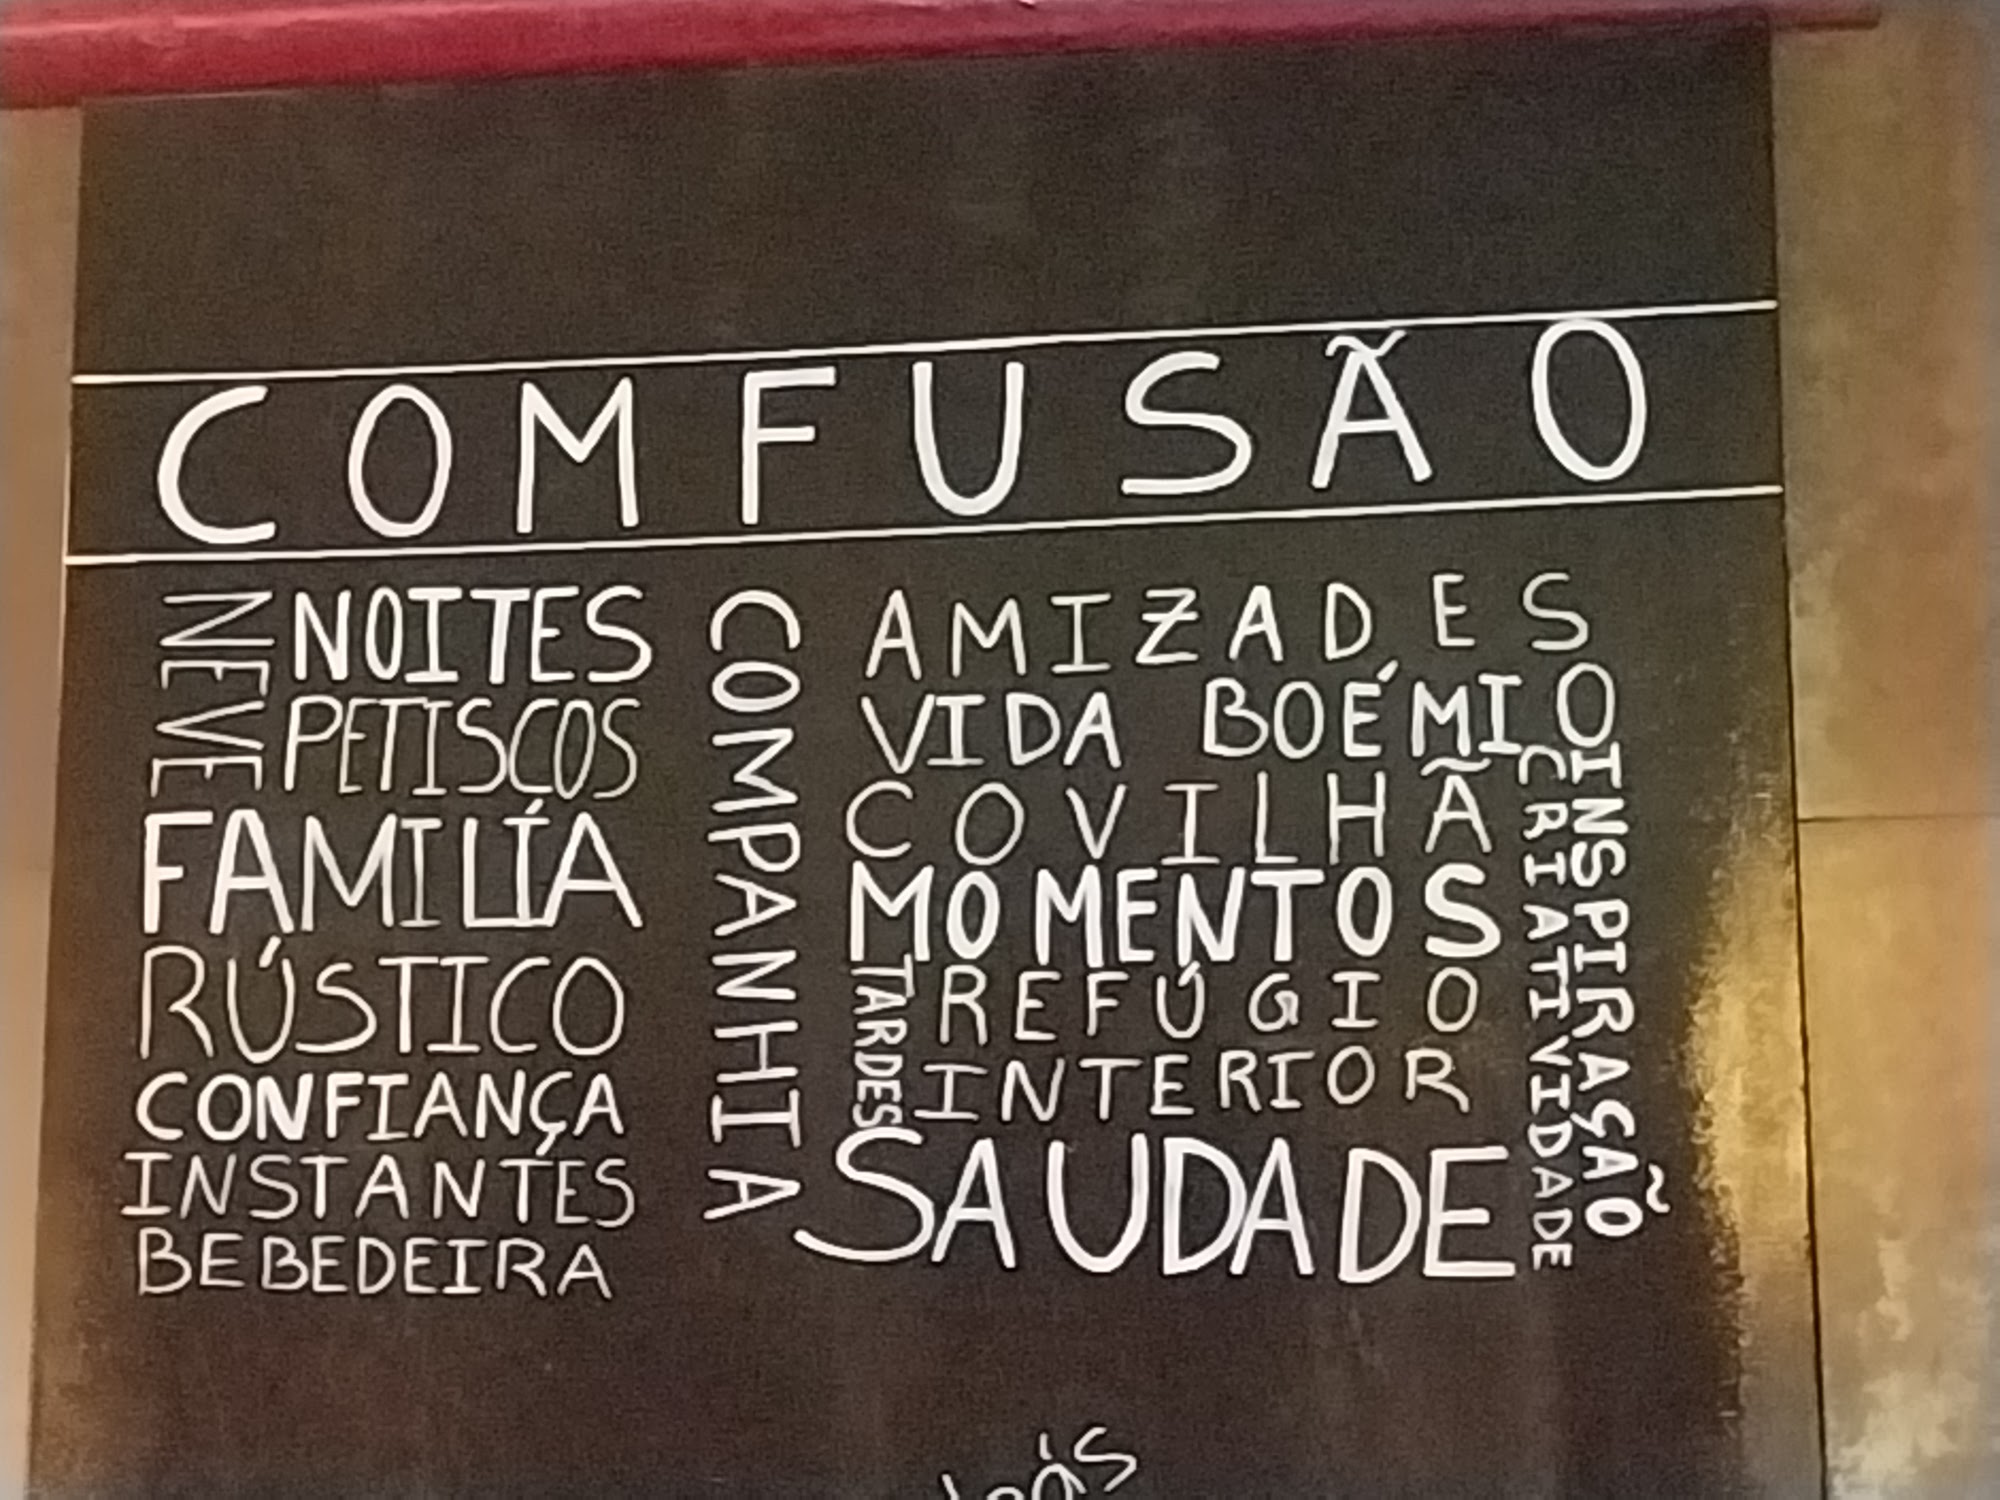 COMFUSÃO
NEVE
NOITES
PETISCOS
FAMILÍA
RÚSTICO
CONFIANÇA
INSTANTES
BEBEDEIRA
COMPANHIA
AMIZADES
VIDA BOÉMIO
COVILHÃ
MOMENTOS
TARDES
REFÚGIO
INTERIOR
SAUDADE
CRIATIVIDADE
INSPIRAÇÃO